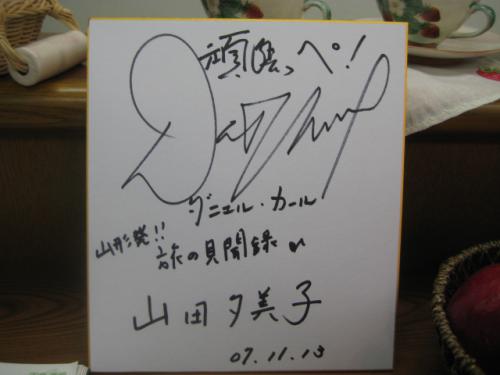 頑張っペ!
ダニエル・カール
山形発!!
旅の見聞録
山田夕美子
07.11.13